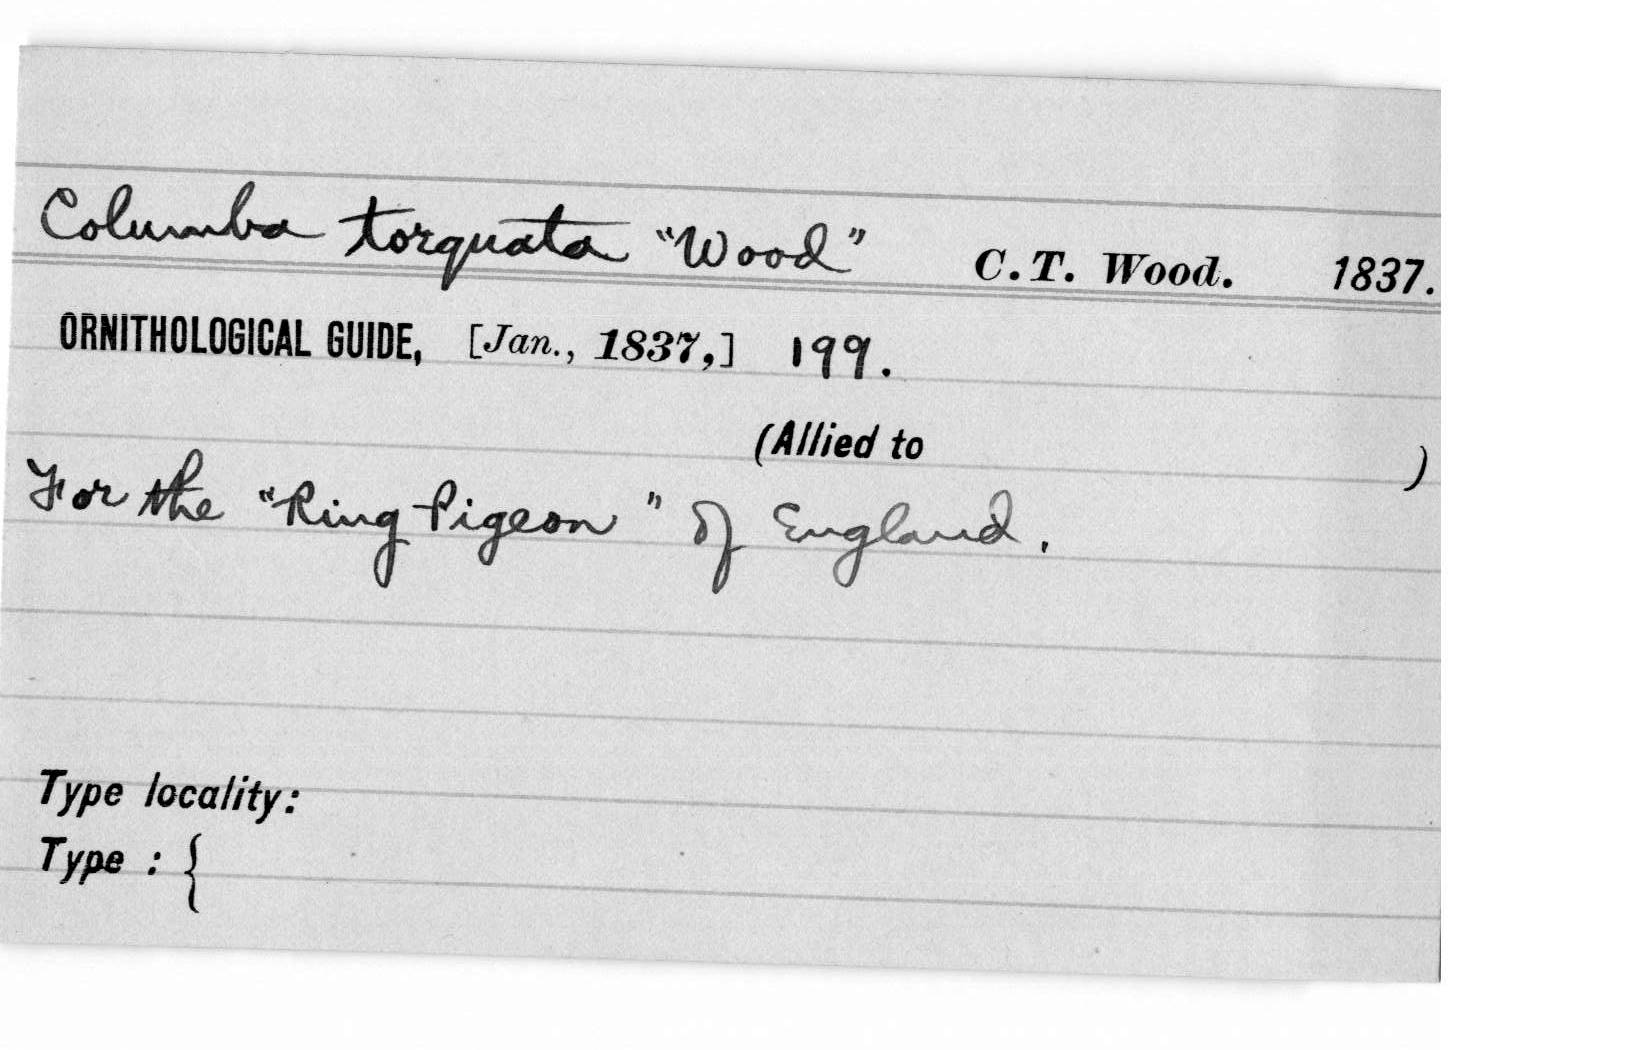 Columba torquata "Wood" C. T. Wood. 1837.
ORNITHOLOGICAL GUIDE, [Jan., 1837,] 199.
(Allied to )
For the "Ring Pigeon" of England.
Type locality:
Type : {